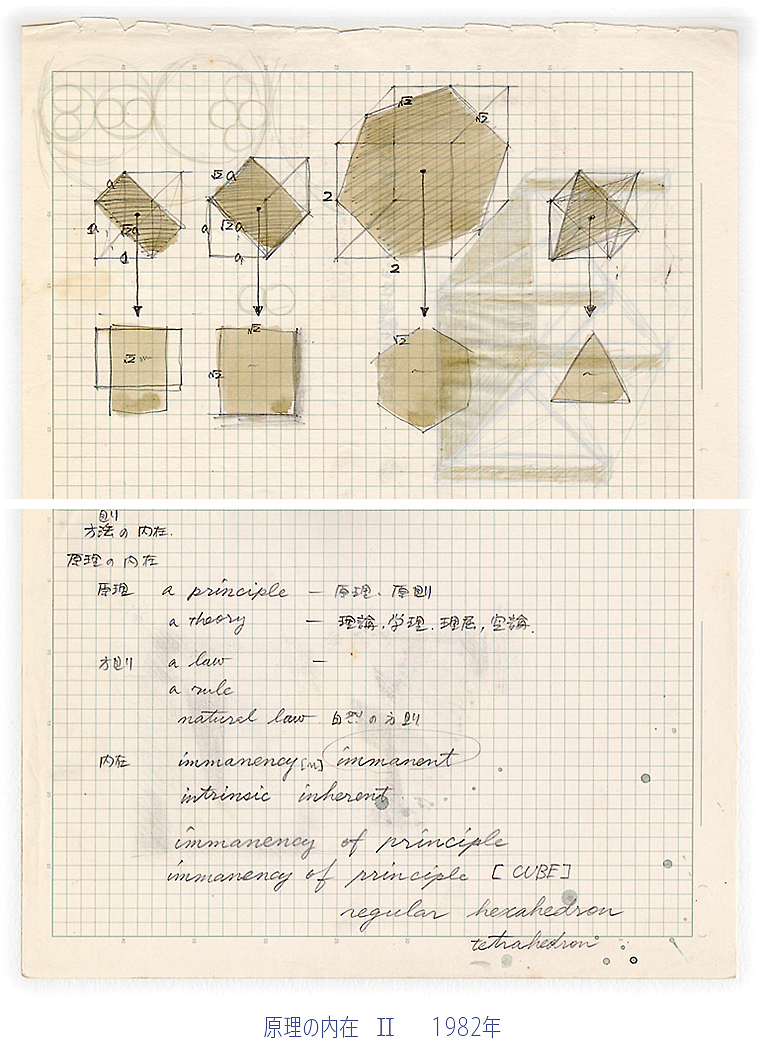 a √2a √2 √2
√2a
1a √2a a 2
1 a 2
√2 √2 √2
√2
則
方法の内在.
原理の内在
原理 a principle — 原理、原則
a theory — 理論.学理.理屈,定論.
方則 a law —
a rule
natural law 自然の方則
内在 immanency [n] immanent
intrinsic inherent
immanency of principle
immanency of principle [CUBE]
regular hexahedron
tetrahedron
原理の内在 II 1982年